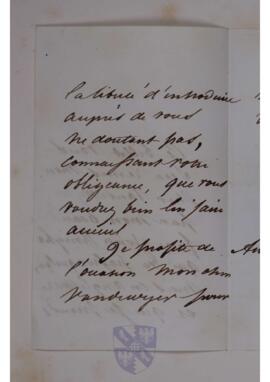 la liberté d'introduire
auprès de vous
ne doutant pas,
connaissant votre
obligeance, que vous
voudrez bien lui faire
accueil
Je profite de
l'occasion mon cher
Vandeweyer pour